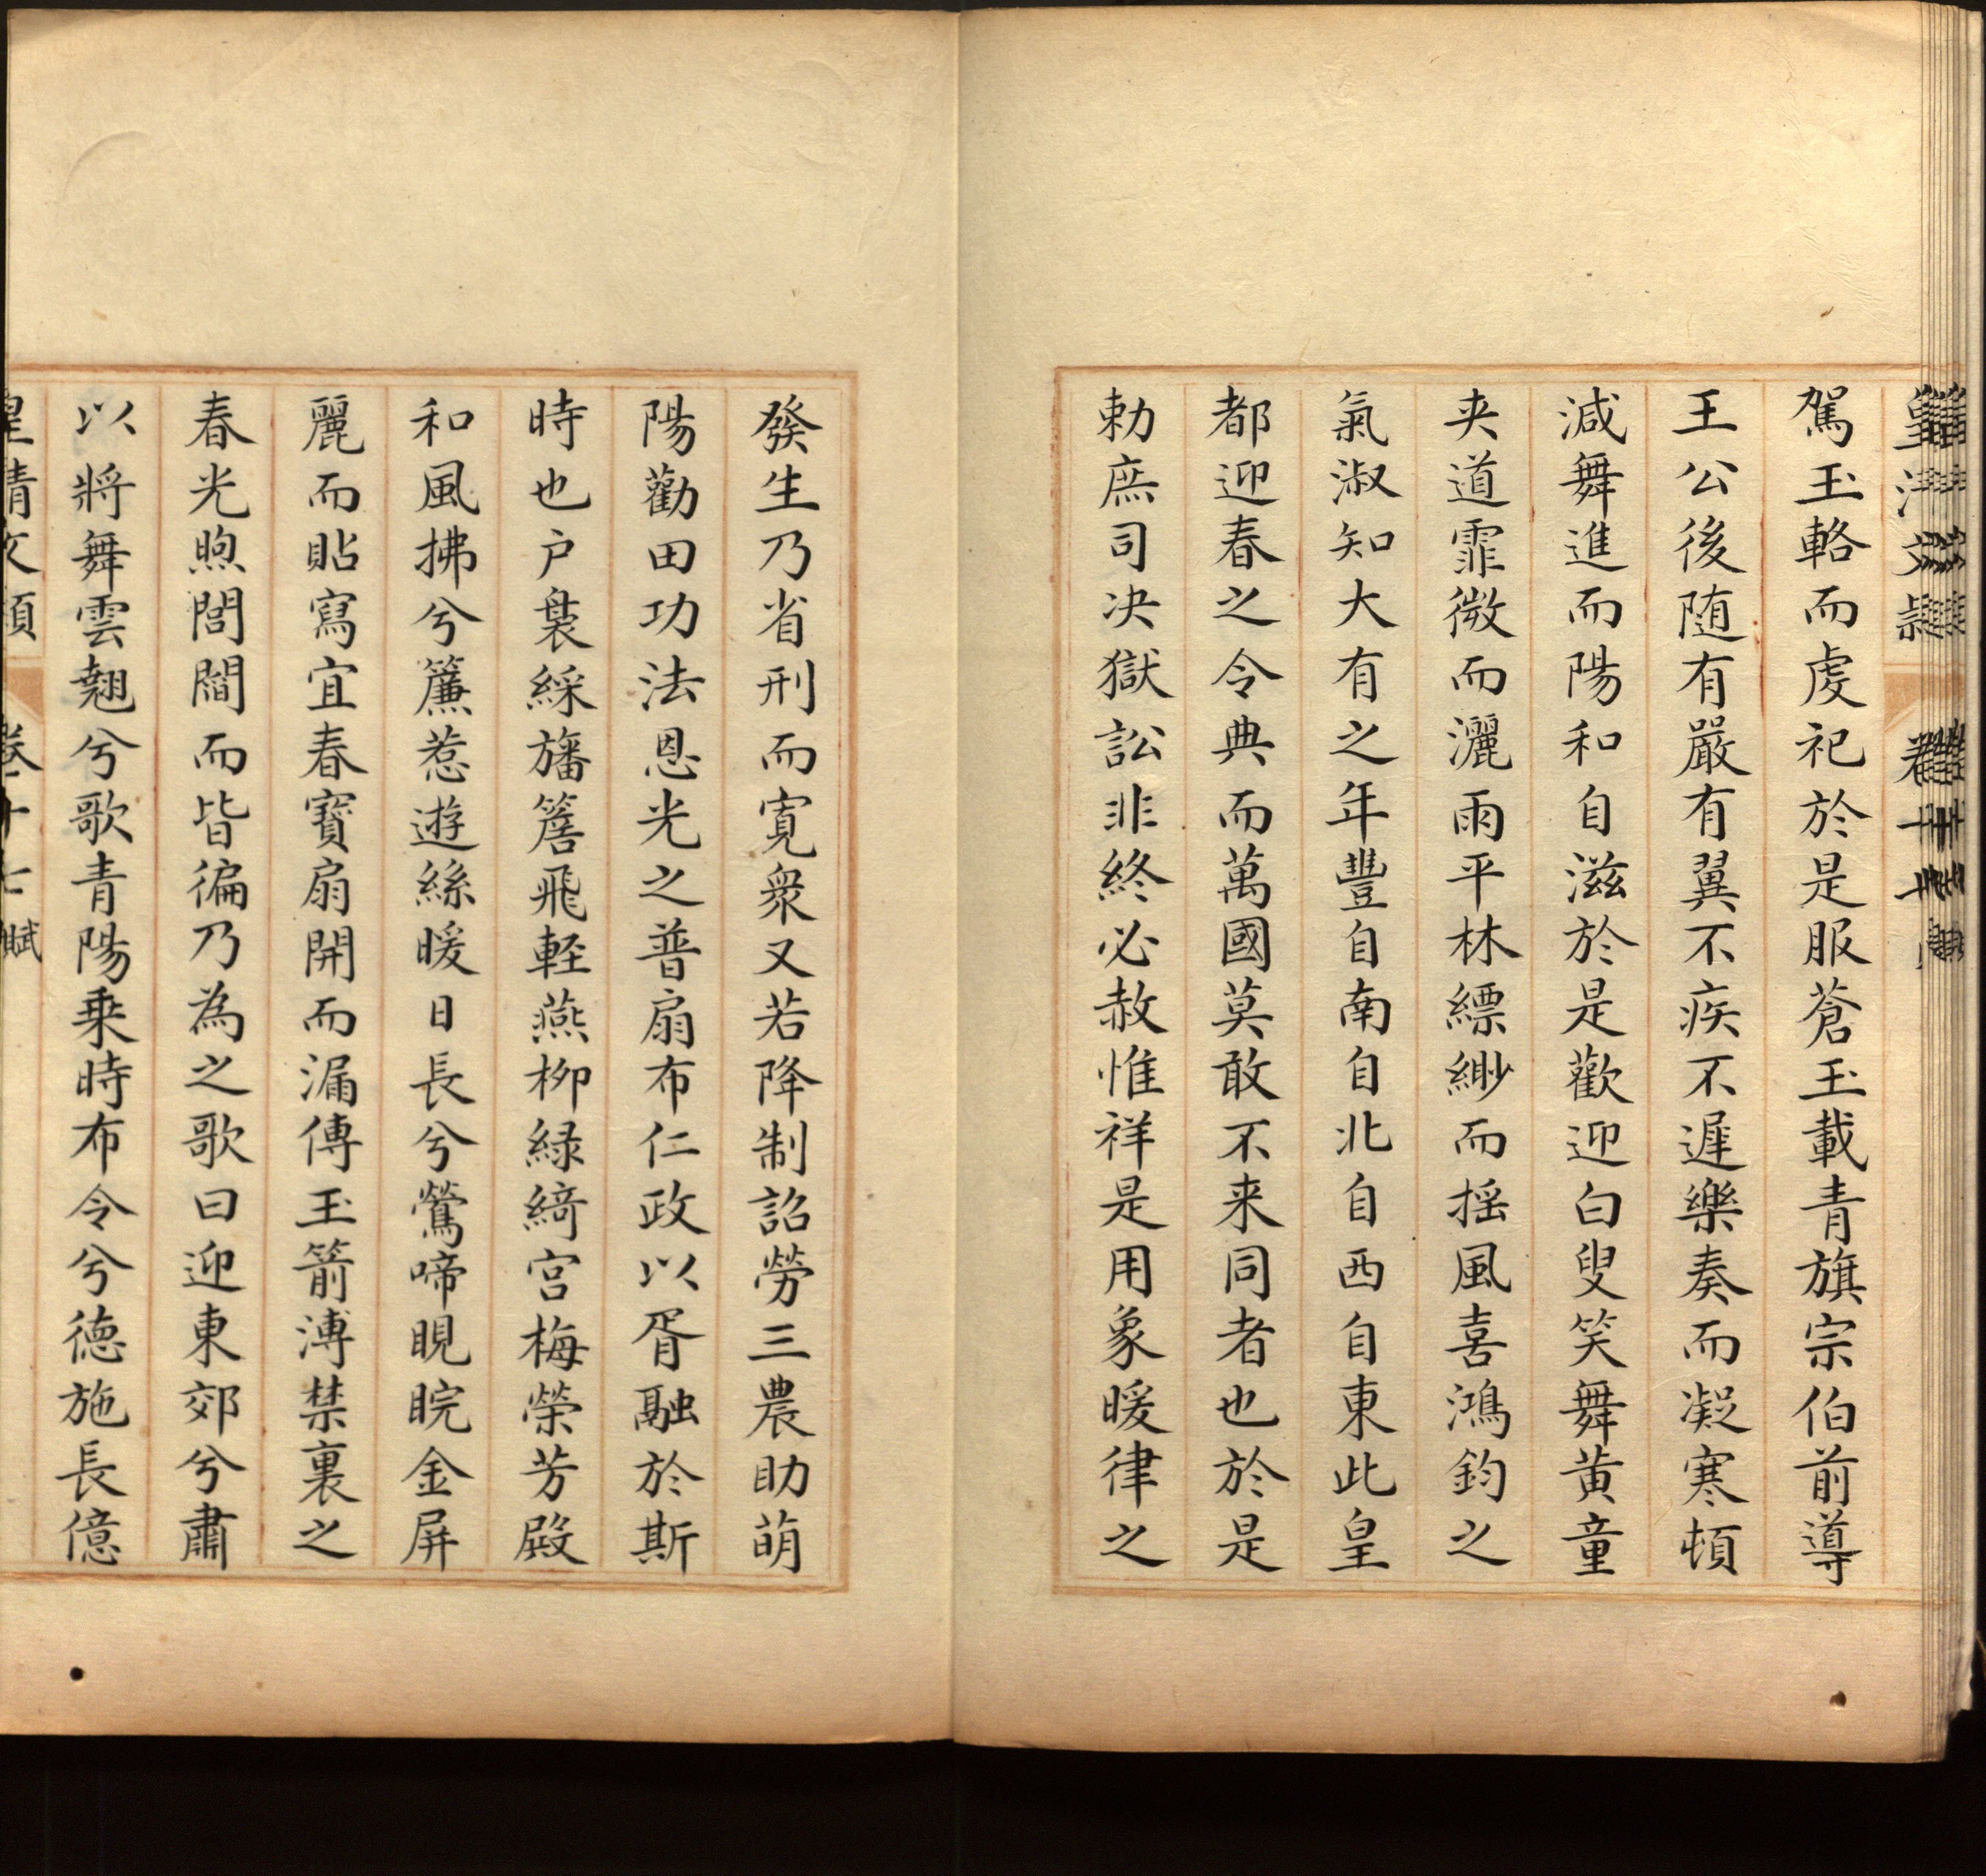 駕玉輅而虔祀於是服蒼玉載青旗宗伯前導
王公後随有嚴有翼不疾不遲樂奏而凝寒頓
減舞進而陽和自滋於是歡迎白叟笑舞黄童
夹道霏微而灑雨平林縹緲而揺風喜鴻鈞之
氣淑知大有之年豐自南自北自西自東此皇
都迎春之令典而萬國莫敢不来同者也於是
勅庶司决獄訟非終必赦惟祥是用象暖律之
發生乃省刑而寛衆又若降制詔勞三農助萌
陽勸田功法恩光之普扇布仁政以胥融於斯
時也户裊綵旛簷飛輕燕柳緑綺宫梅榮芳殿
和風拂兮簾惹遊絲暖日長兮鶯啼睍睆金屏
麗而貼寫宜春寳扇開而漏傳玉箭溥禁裏之
春光煦閭閻而皆徧乃為之歌曰迎東郊兮肅
以將舞雲翹兮歌青陽乗時布令兮徳施長億
皇清文潁 卷十七 賦